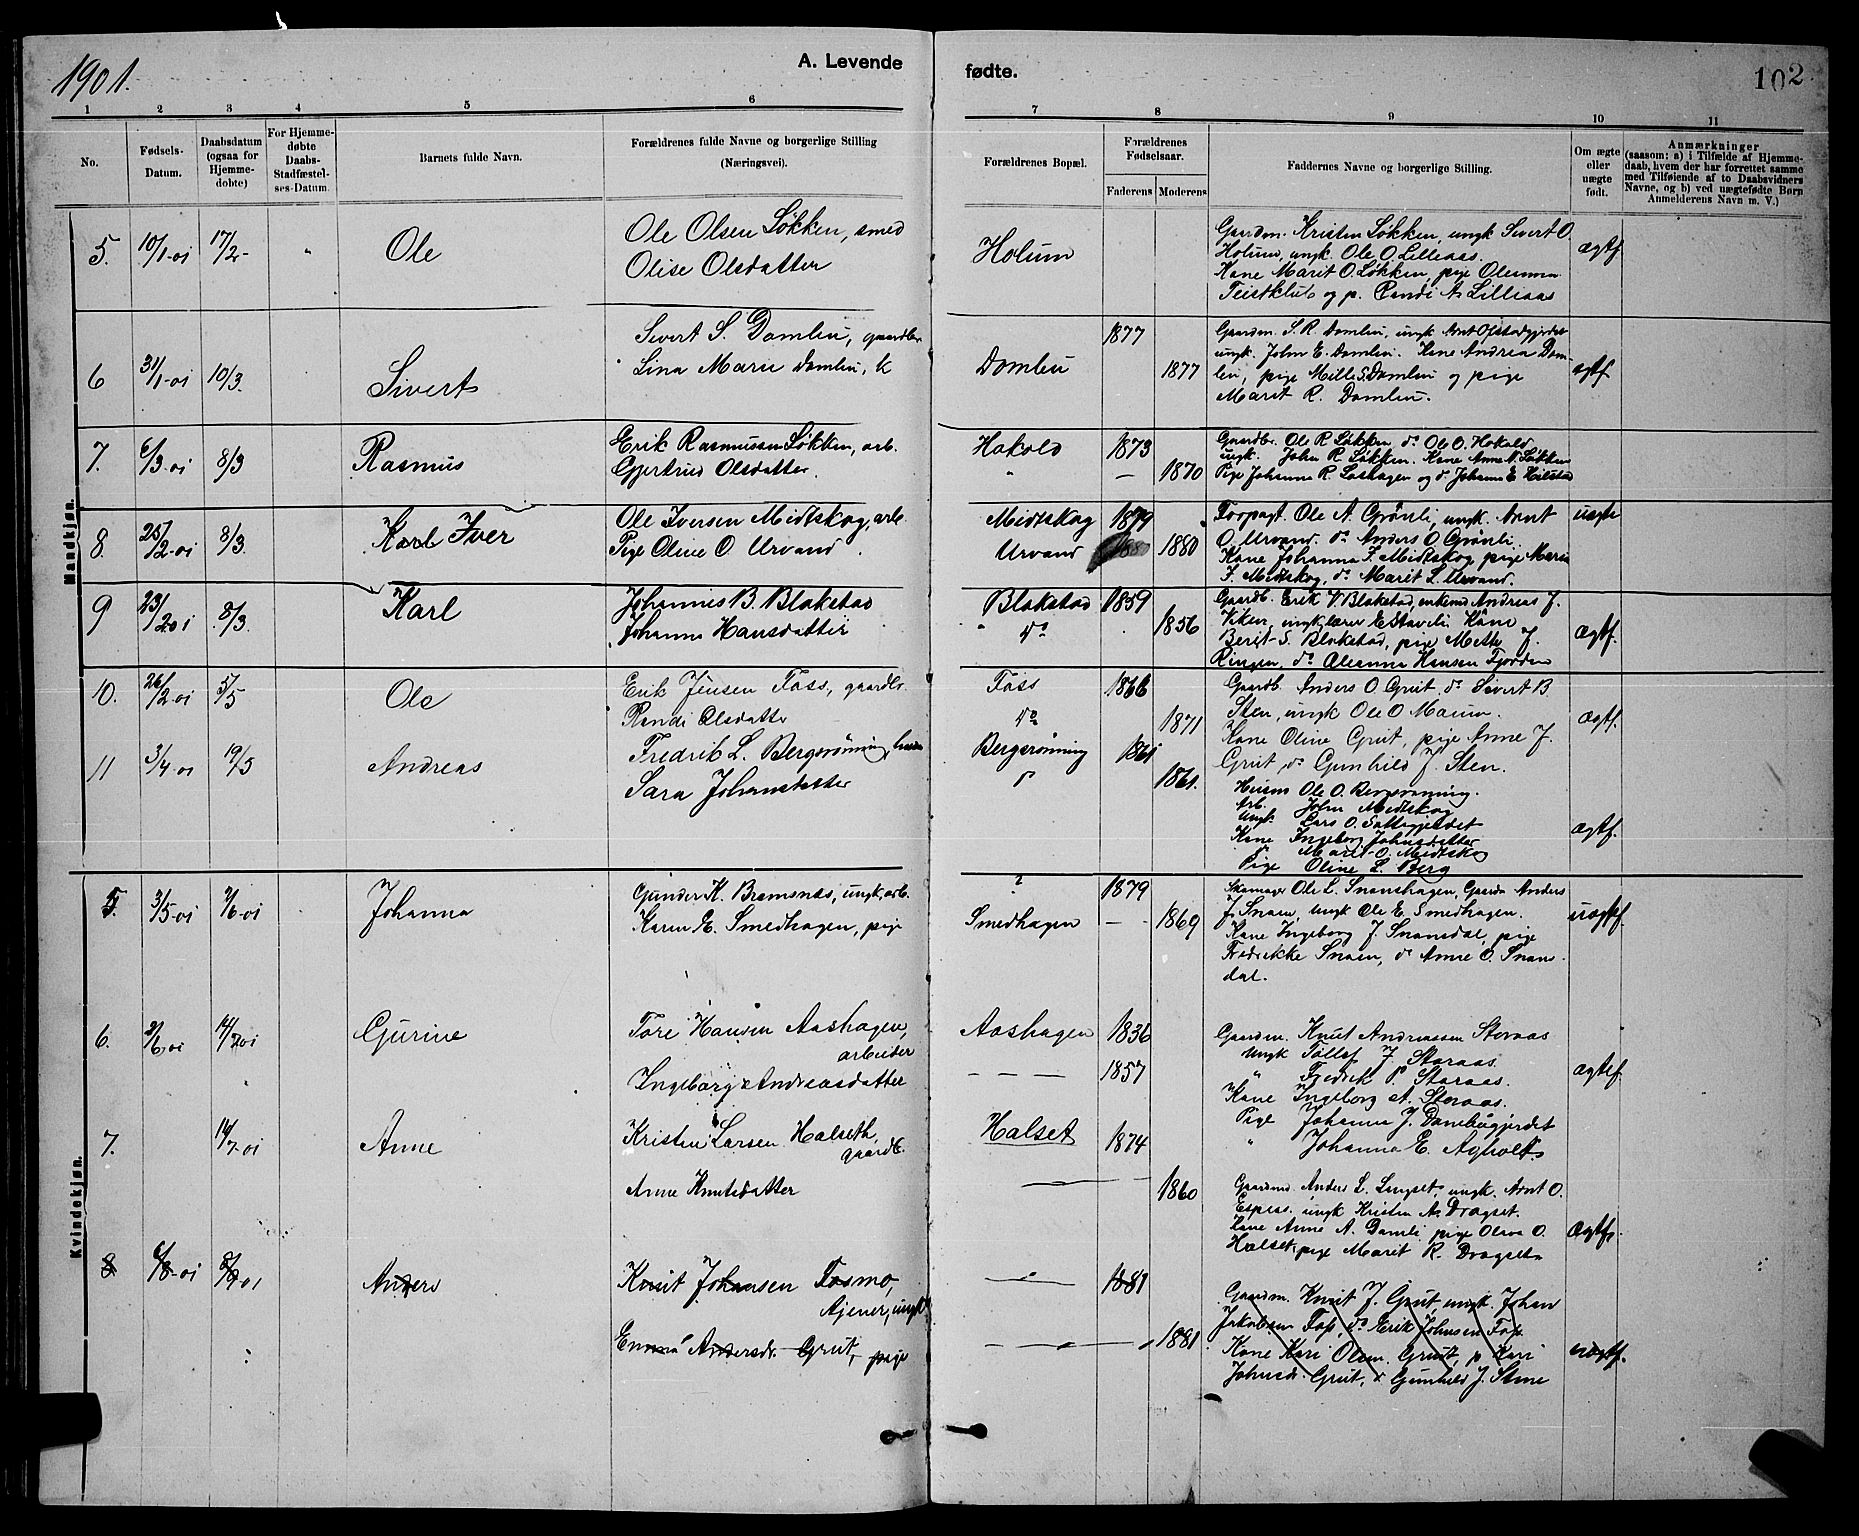 1901.
A. Levende
fødte.
102
1 2 3 4 5 6 7 8 9 10 11
No.
Fødsels-
Datum.
Daabsdatum
(ogsaa for
Hjemme-
døbte)
For Hjemme-
døbte
Daabs-
Stadfæstel-
ses-Datum.
Barnets fulde Navn.
Forældrenes fulde Navne og borgerlige Stilling
(Næringsvei).
Forældrenes Bopæl.
Forældrenes
Fødselsaar.
Faderens
Moderens
Faddernes Navne og borgerlige Stilling.
Om ægte
eller
uægte
født.
Anmærkninger
(saasom: a) i Tilfælde af Hjemme-
daab, hvem der har forrettet samme
med Tilføiende af to Daabsvidners
Navne, og b) ved uægtefødte Børn
Anmelderens Navn m. V.)
Mandkjøn.
5. 10/1-01 17/2- " Ole
Ole Olsen Løkken, smed
Olise Olsdatter
Holum
Gaardm. Kristen Løkken, ungk Sivert O.
Holum, ungk. Ole O. Lilleaas.
Kone Marit O. Løkken, pige Olemma
Teistklub og p. Randi A. Lilliaas
ægtf.
6 31/1-01 10/3. Sivert
Sivert S. Domliu, gaardbr.
Lina Marie Domliu, k
Domliu
1877
1877
Gaardm. S. R. Domliu, ungk Arnt Olstadgjerdet
ungk. John E. Domliu. Kone Andrea Dom-
liu, pige Mille S. Domliu og pige
Marit R. Domliu.
ægtf.
7. 6/3-01 8/3 Rasmus
Erik Rasmussen Løkken, arb.
Gjertrud Olsdatter.
Hokold
"
1873
1870
Gaardbr. Ole R Løkken, do Ole O. Hokold
ungk. John R. Løkken. Kone Anne N. Løkken
Pige Johanna R. Loshagen og d. Johanna E Hilstad
8. 25/2-01 8/3. Karl Iver
Ole Iversen Midtskog, arb.
Pige Oline O. Urvand.
Midtskog
Urvand
1879
1880
Forpagt. Ole A. Grønli, ungk. Arnt
O. Urvand, do Anders O Grønli.
Kone Johanna I. Midtskog pige Marie
I. Midtskog, do Marit L. Urvand.
uægte
9 23/2 01 8/3. Karl
Johannes B. Blakstad
Johanna Hansdatter
Blakstad
" do
1859
1856
Gaardb. Erik V. Blakstad, enkemd Andreas J.
Viken, ungk, lærer E Staveli Kone
Berit S. Blakstad, pige Mette J.
Ringen, do Oleanna Hansen Fjorden
ægtf.
10. 26/2-01 5/5 Ole
Erik Jensen Foss, gaardbr.
Randi Olsdatter
Foss
do
1866
1871
Gaardb. Anders O Grut, do Sivert B.
Sten, ungk Ole O Moum.
Kone Oline Grut, pige Anne J.
Grut, do Gunhild J. Sten.
ægtf.
11 3/4 01 19/5 Andreas
Fredrik L. Bergsrønning,
Sara Johansdatter
Bergsrønning
1861
1861.
Husm Ole O. Bergsrønning.
Arb. John Midtskog
Ungk. Lars O. Sattagjerdet
Kone Ingeborg Johnsdatter
" Marit O. Midtskog
Pige Oline L. Berg
ægtf.
Kvindekjøn.
5. 3/5-01 2/6-01 Johanna
Gunder K. Bremsnæs, ungk, arb.
Karen E. Smedhagen, pige
?
Smedhagen
1879
1869
Skomager Ole L. Snoenshagen, Gaardm Anders
J. Snoen, ungk Ole E. Smedhagen.
Kone Ingeborg J. Snoensdal, pige
Fredrikke Snoen, do Anne O. Snoens-
dal.
uægtef.
6. 2/6 01 14/7 01 Gurine
Tore Hansen Aashagen,
arbeider
Ingeborg Andreasdatter
Aashagen
1836
1857
Gaardm. Knut Andreassen Storaas
Ungk Tollef J. Storaas.
" Fredrik P. Storaas.
Kone Ingeborg A. Storaas.
Pige Johanna J. Donebøgjerdet
" Johanna E. Agholt
ægtef.
7. 14/7-01 Anne
Kristen Larsen Halseth,
gaardb.
Anne Knutsdatter
Halset
1874
1860
Gaardmd. Anders L. Lingset, ungk. Arnt O.
Espaas. ungk Kristen A. Dragset.
Kone Anne A. Domli, pige Oliva O.
Halset, pige Marit R. Dragset.
Ægtf.
8 6/8-01 8/9 01 Anders
Knut Johansen Fosmo,
tjener, ungk.
Emma Andersdr. Grut, pige
1881
1881
Gaardm. Knut J. Grut, ungk. Johan
Jakobsen Foss, do Erik Johnsen Foss
Kone Kari Olsen. Gruit, p. Kari
Johnsd. Grut, d Gunhild J. Stene
uægtf.